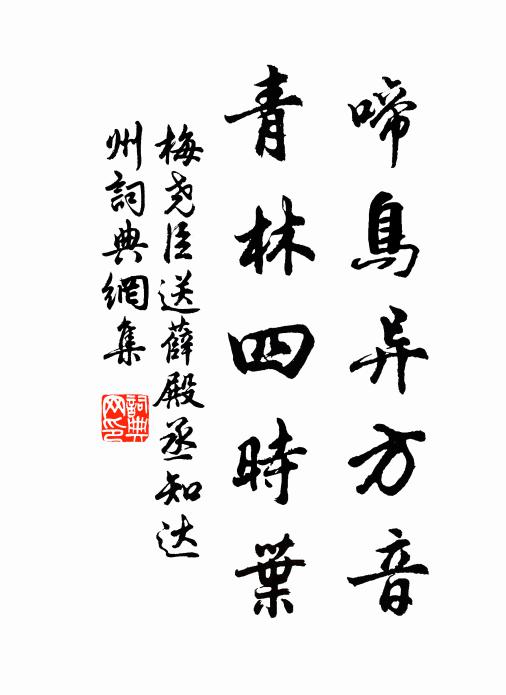 啼鳥异方音
青林四時葉
梅尧臣送薛殿丞知达
州詞典網集
詞典网印